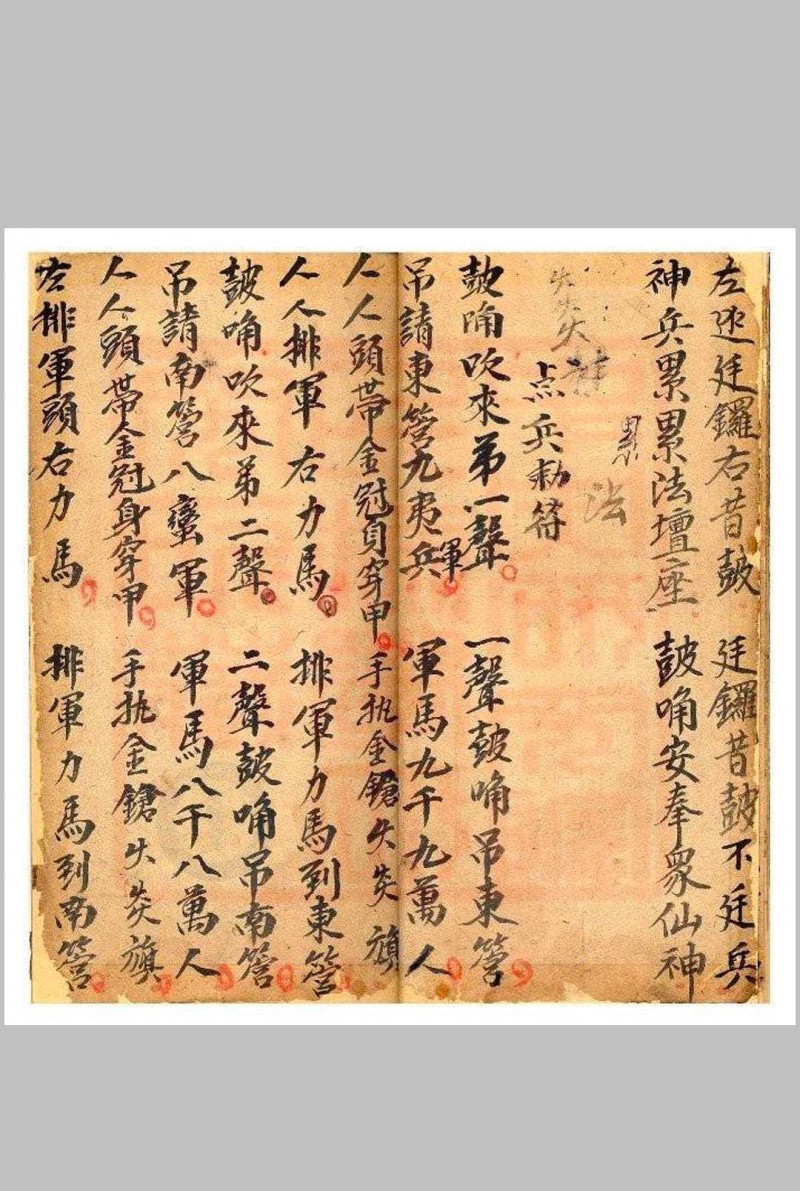 左迎廷鑼右昔鼓 廷鑼昔鼓不廷兵
神兵累累法壇座 鼓喃安奉衆仙神
累
法
点兵勅符
鼓喃吹來弟一聲 一聲鼓喃吊東營
吊請東營九夷兵軍 軍馬九千九萬人
人人頭帶金冠身穿甲 手执金鎗失炎旗
人人排軍右力馬 排軍力馬到東營
鼓喃吹來弟二聲 二聲鼓喃吊南營
吊請南營八蠻軍 軍馬八千八萬人
人人頭帶金冠身穿甲 手执金鎗失炎旗
左排軍頭右力馬 排軍力馬到南營